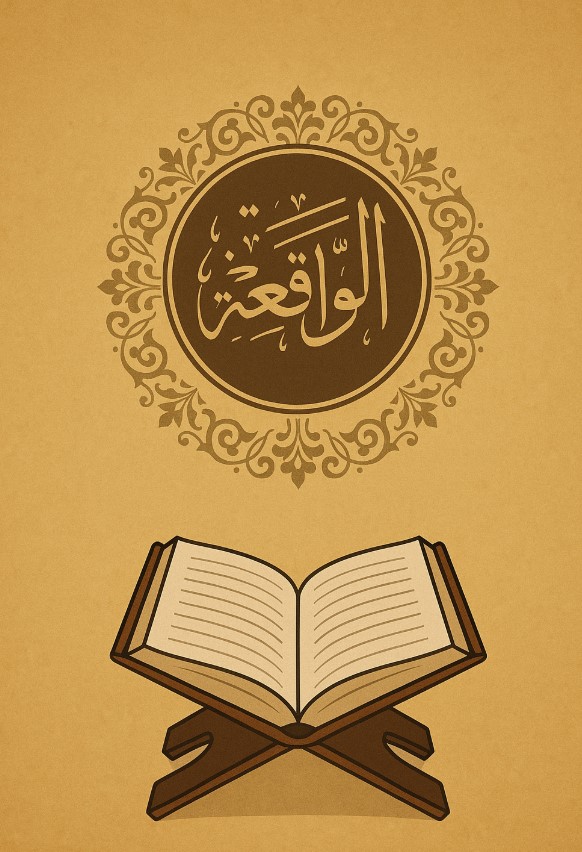 الْوَاقِعَة